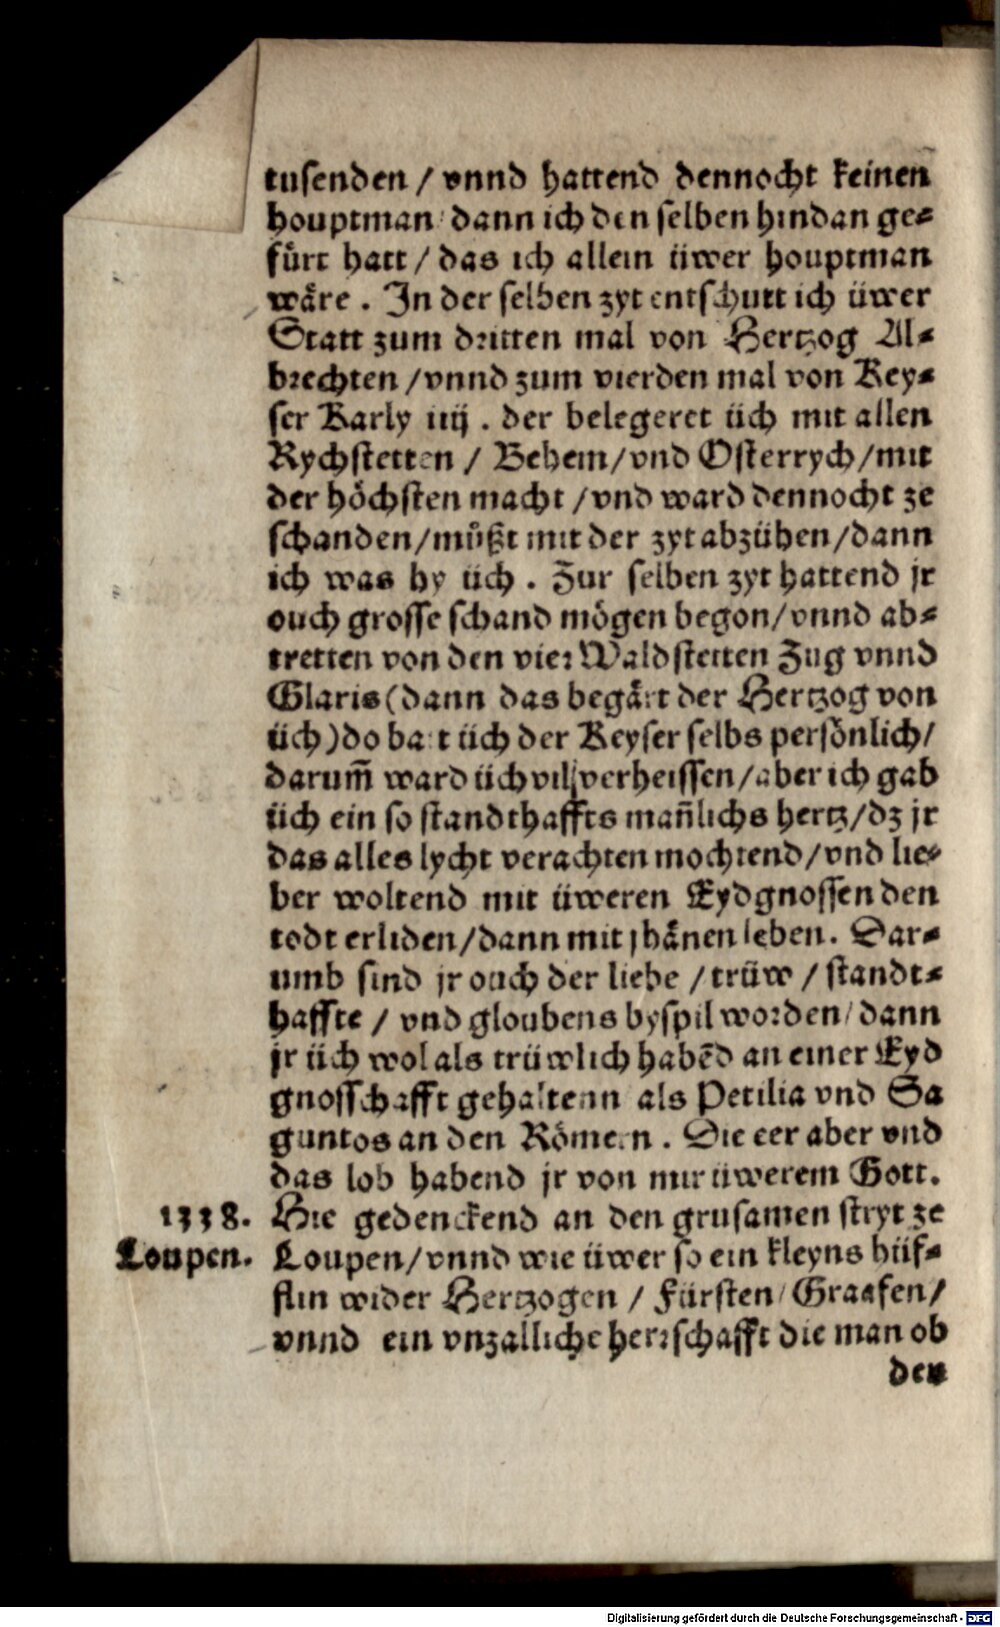 tusenden / vnnd hattend dennocht keinen
houptman / dann ich den selben hindan ge⸗
fuͤrt hatt / das ich allein üwer houptman
waͤre . In der selben zyt entschutt ich üwer
Statt zum dritten mal von Hertzog Al⸗
brechten / vnnd zum vierden mal von Key⸗
ser Karly iiij . der belegeret üch mit allen
Rychstetten / Behem / vnd Osterrych / mit
der hoͤchsten macht / vnd ward dennocht ze
schanden / muͤßt mit der zyt abzühen / dann
ich was by üch . Zur selben zyt hattend jr
ouch grosse schand moͤgen begon / vnnd ab⸗
tretten von den vier Waldstetten Zug vnnd
Glaris (dann das begaͤrt der Hertzog von
üch) do batt üch der Keyser selbs persoͤnlich /
darum̃ ward üch vil verheissen / aber ich gab
üch ein so standthaffts man̄lichs hertz / dz jr
das alles lycht verachten mochtend / vnd lie⸗
ber woltend mit üweren Eydgnossen den
todt erliden / dann mit jhaͤnen leben . Dar⸗
umb sind jr ouch der liebe / trüw / standt⸗
haffte / vnd gloubens byspil worden / dann
jr üch wol als trüwlich habēd an einer Eyd
gnosschafft gehaltenn als Petilia vnd Sa
guntos an den Roͤmern . Die eer aber vnd
das lob habend jr von mir üwerem Gott .
1338. Hie gedenckend an den grusamen stryt ze
Loupen. Loupen / vnnd wie üwer so ein kleyns hüf⸗
flin wider Hertzogen / Fürsten / Graafen /
vnnd ein vnzalliche herrschafft die man ob
den
Digitalisierung gefördert durch die Deutsche Forschungsgemeinschaft - DFG